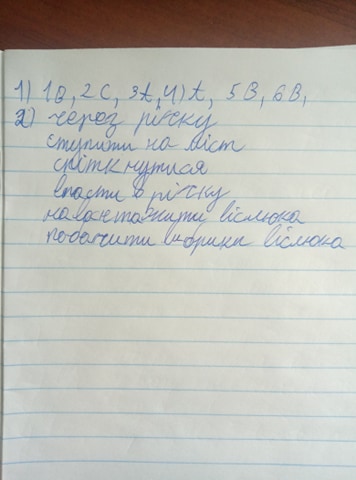 1) 1В, 2С, 3А, 4)А, 5В, 6В,
2) через річку
ступити на міст
спіткнутися
впасти в річку
навантажити віслюка
побачити вибрики віслюка